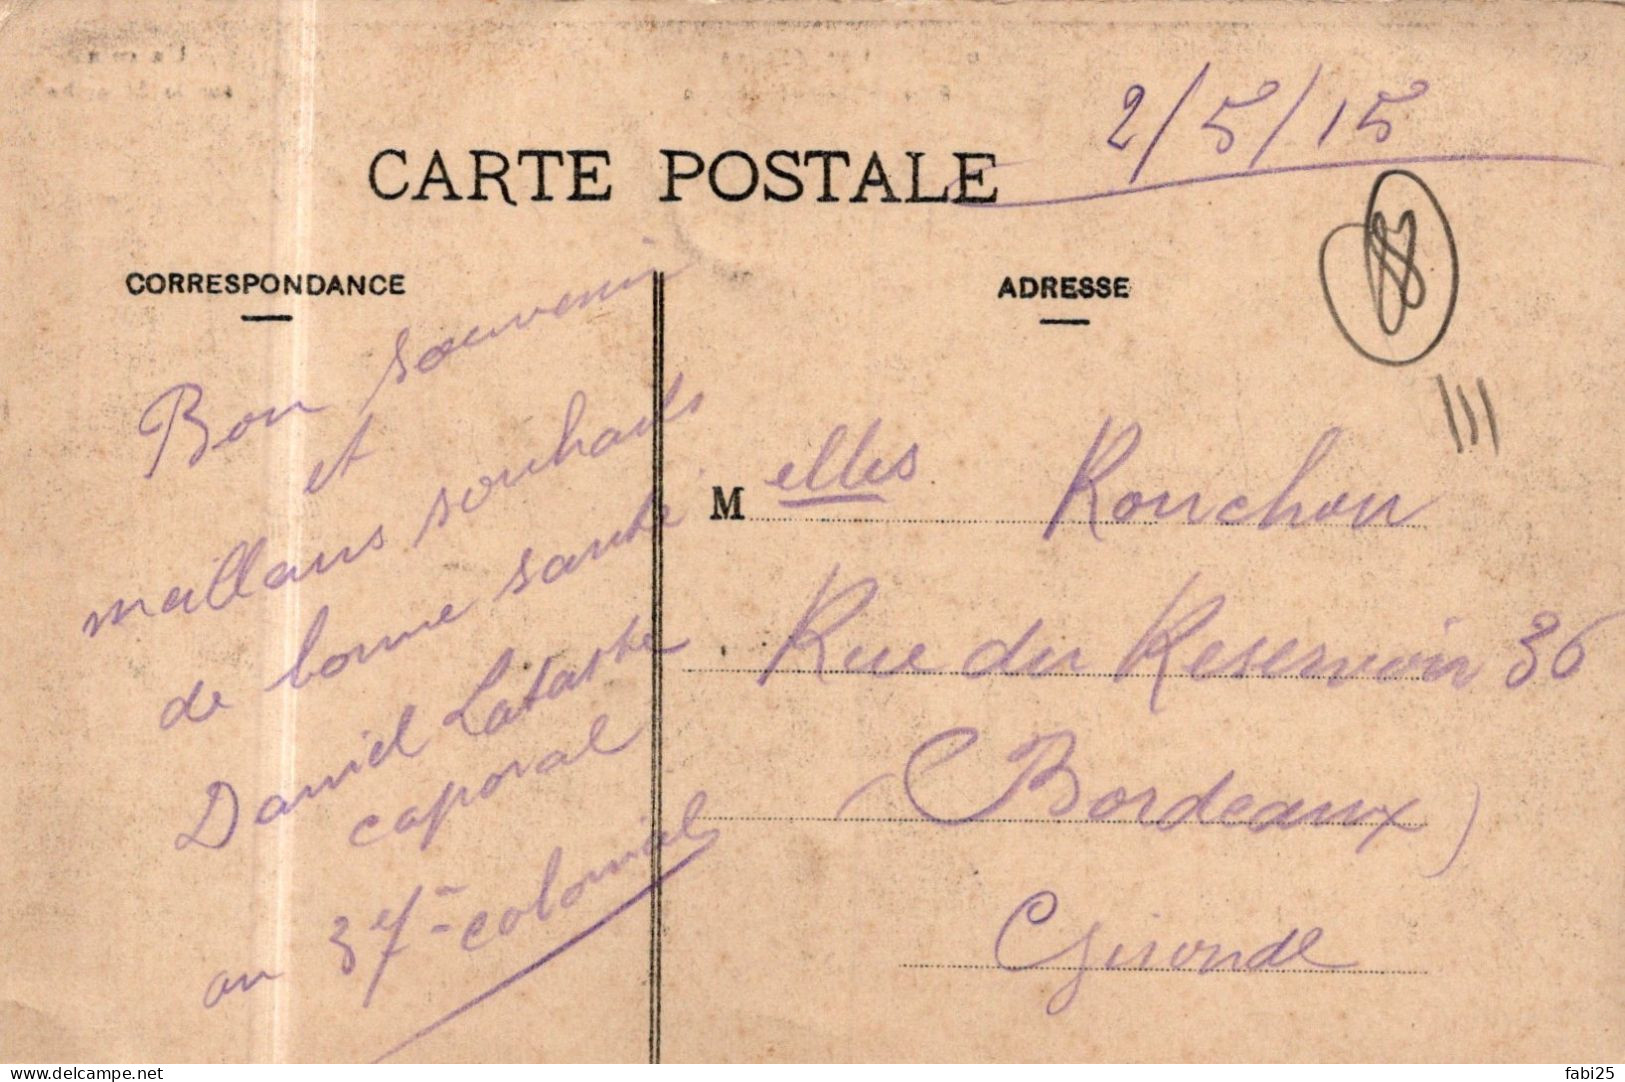 2/5/15
CARTE POSTALE
CORRESPONDANCE
ADRESSE
Bon souvenir
et
meilleurs souhaits
de bonne santé
Daniel Lataste
caporal
au 37e colonial
Melles Ronchon
Rue du Reservoir 36
(Bordeaux)
Gironde
delcampe.net
fabi25